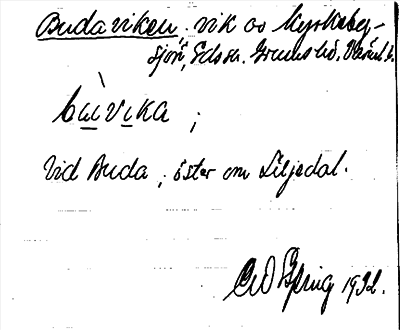 Budaviken, vik av Kyrkeby-
sjön, Edssn. Grums hd. Värml. l.
bùvika ;
Vid Buda, öster om Liljedal.
1932.